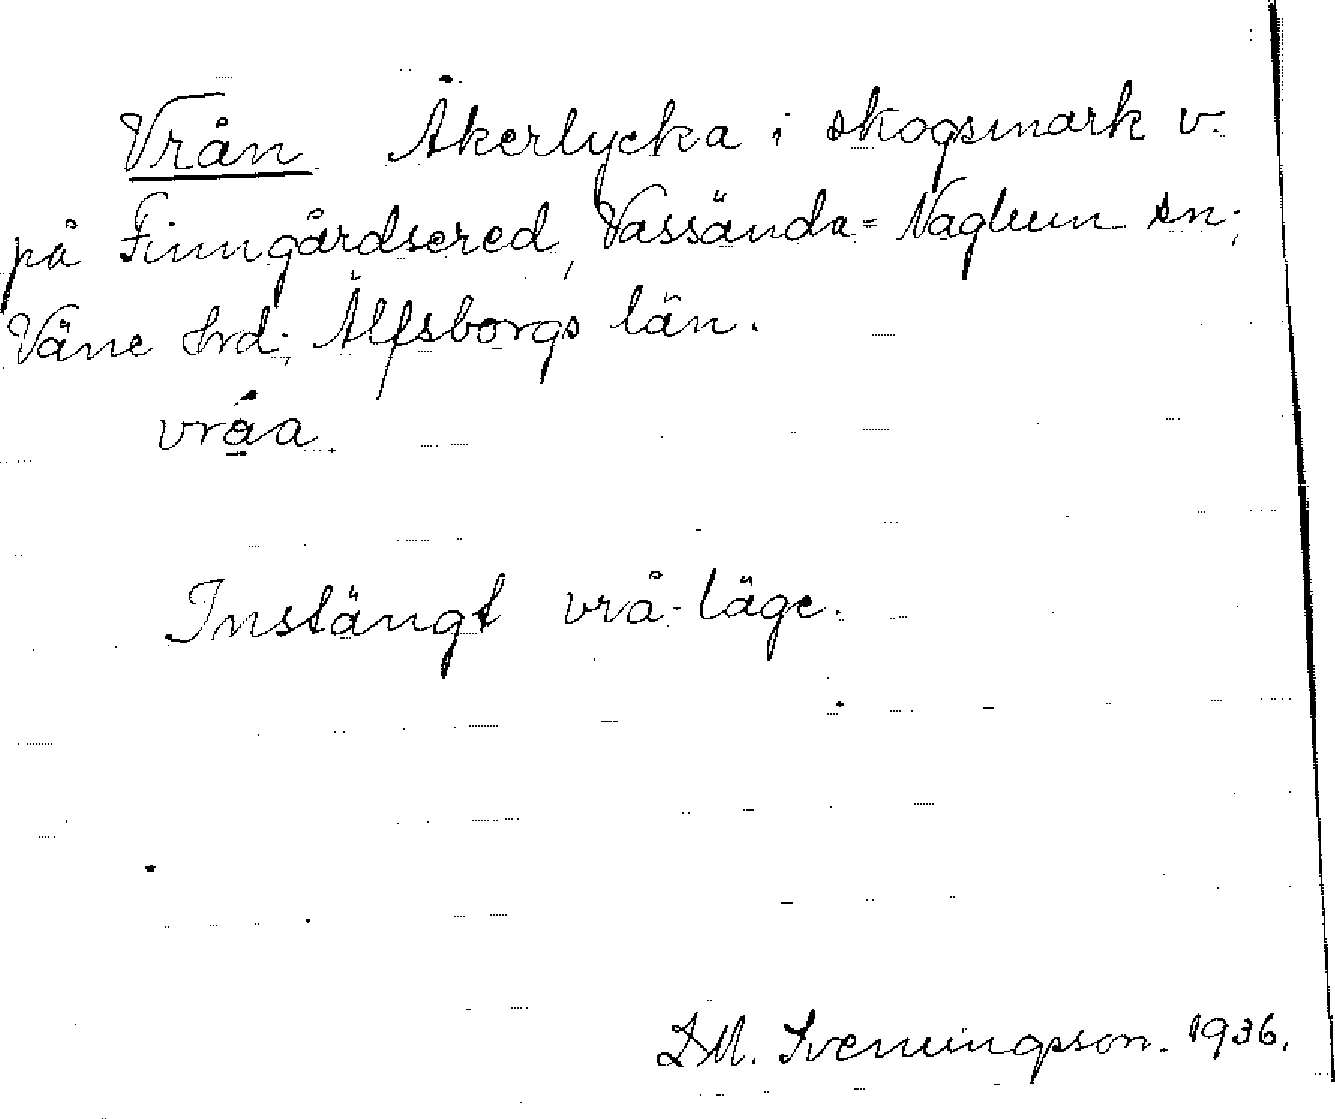 Vrån Åkerlycka i skogsmark v.
på Finngårdsered, Vassända=Naglum sn;
Väne hrd; Älfsborgs län.
vråa.
Instängt vrå-läge.
D.M. Svenningsson. 1936.